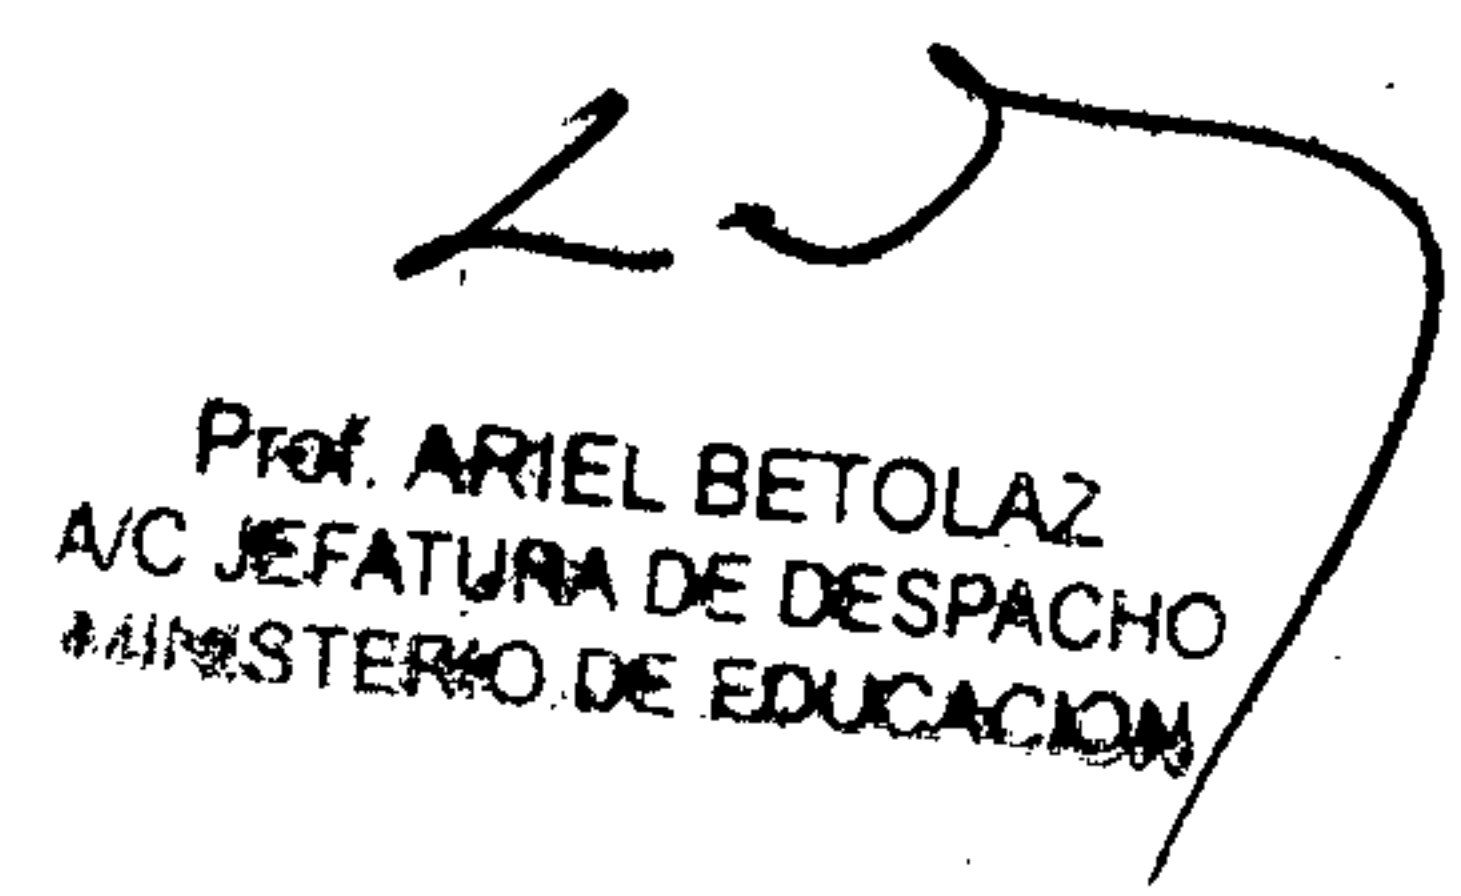 Prof. ARIEL BETOLAZ
A/C JEFATURA DE DESPACHO
MINISTERIO DE EDUCACION